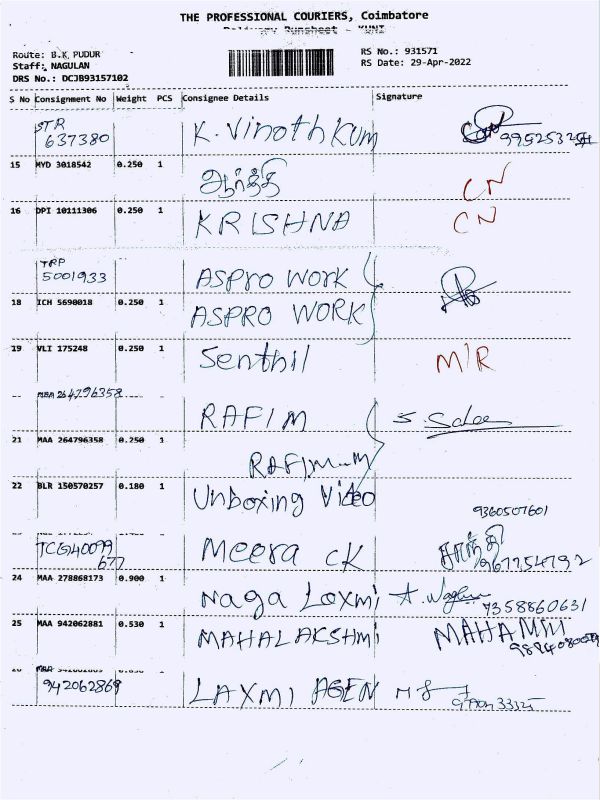 THE PROFESSIONAL COURIERS, Coimbatore
Delivery Runsheet - KUNI
Route: B.K. PUDUR
Staff: NAGULAN
DRS No.: DCJB93157102
RS No.: 931571
RS Date: 29-Apr-2022
S No Consignment No Weight PCS Consignee Details Signature
STR
637380 K. Vinoth Kum
15 MYD 3018542 0.250 1 ஆர்த்தி CN
16 DPI 10111306 0.250 1 KRISHNA CN
TRP
5001933 ASPRO WORK
18 ICH 5690018 0.250 1 ASPRO WORK
19 VLI 175248 0.250 1 Senthil M/R
MAA 264796358 RAFI M
21 MAA 264796358 0.250 1 RAFI M
22 BLR 150570257 0.180 1 Unboxing Video
9360507601
TCG 40099
677 Meera CK சாந்தி
9677254792
24 MAA 278868173 0.900 1 Naga Laxmi
7358860631
25 MAA 942062881 0.530 1 MAHALAKSHMI MAHA
942062869 LAXMI AGEN